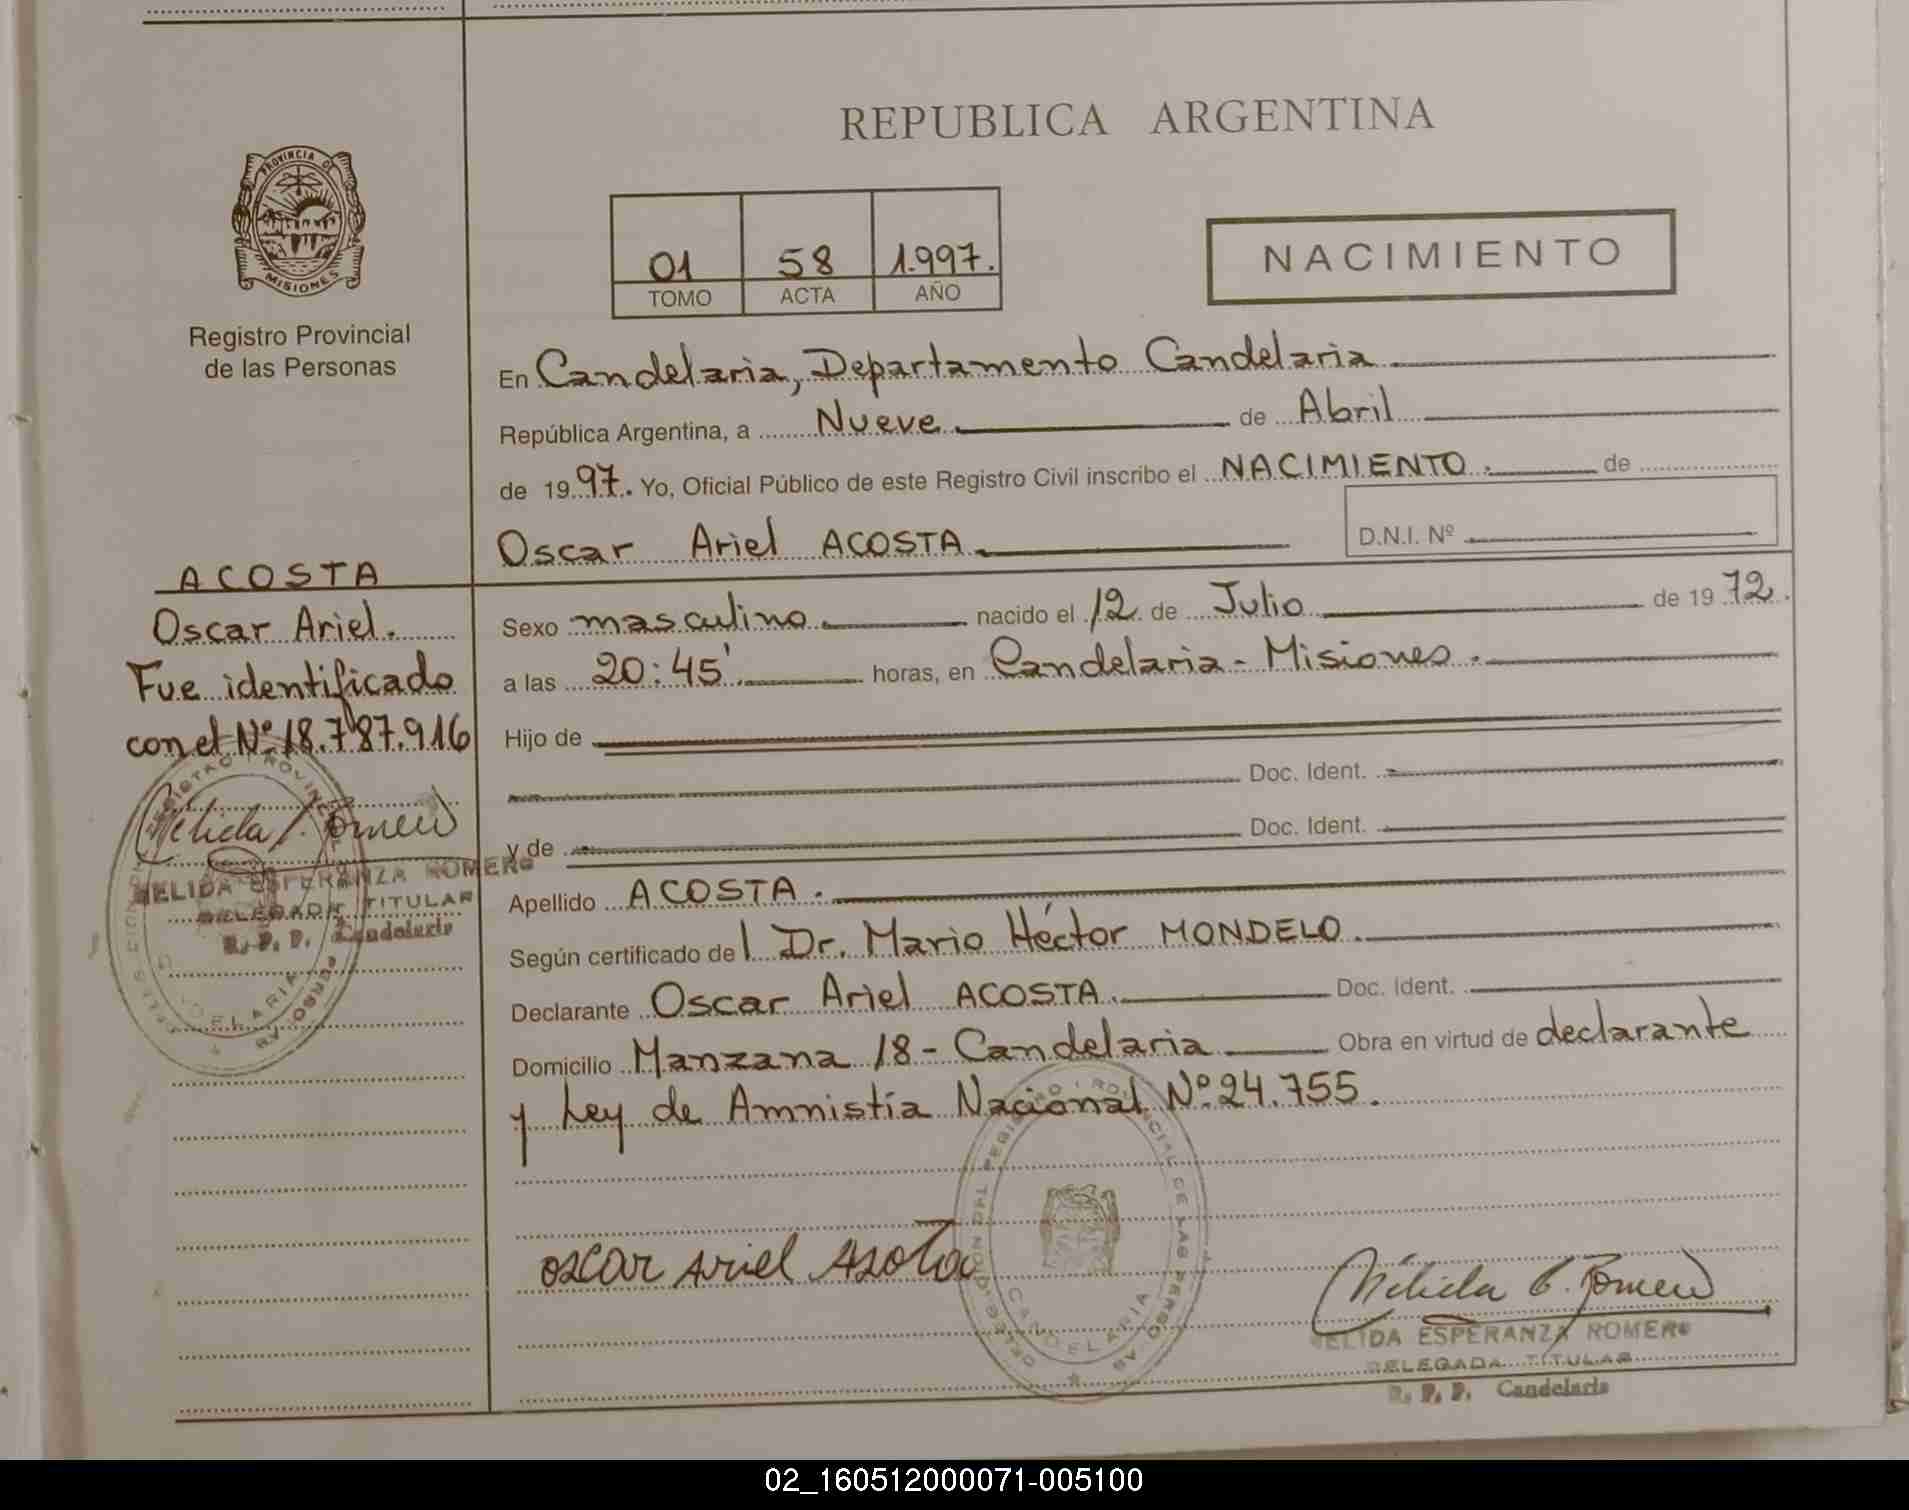 REPUBLICA ARGENTINA
PROVINCIA DE
MISIONES
Registro Provincial
de las Personas
01 58 1.997.
TOMO ACTA AÑO
NACIMIENTO
En Candelaria, Departamento Candelaria
República Argentina, a Nueve de Abril
de 1997. Yo, Oficial Público de este Registro Civil inscribo el NACIMIENTO. de
Oscar Ariel ACOSTA
D.N.I. Nº
ACOSTA
Oscar Ariel.
Fue identificado
con el Nº 18.787.916
Nélida E. Romero
NELIDA ESPERANZA ROMERO
DELEGADA TITULAR
R. P. P. Candelaria
Sexo masculino. nacido el 12 de Julio de 1972.
a las 20:45' horas, en Candelaria - Misiones.
Hijo de
Doc. Ident.
y de Doc. Ident.
Apellido ACOSTA.
Según certificado del Dr. Mario Héctor MONDELO.
Declarante Oscar Ariel ACOSTA. Doc. Ident.
Domicilio Manzana 18 - Candelaria Obra en virtud de declarante
y Ley de Amnistía Nacional Nº 24.755.
DELEGACION DEL REGISTRO PROVINCIAL DE LAS PERSONAS
CANDELARIA
oscar Ariel Acosta
Nélida E. Romero
NELIDA ESPERANZA ROMERO
DELEGADA TITULAR
R. P. P. Candelaria
02_160512000071-005100